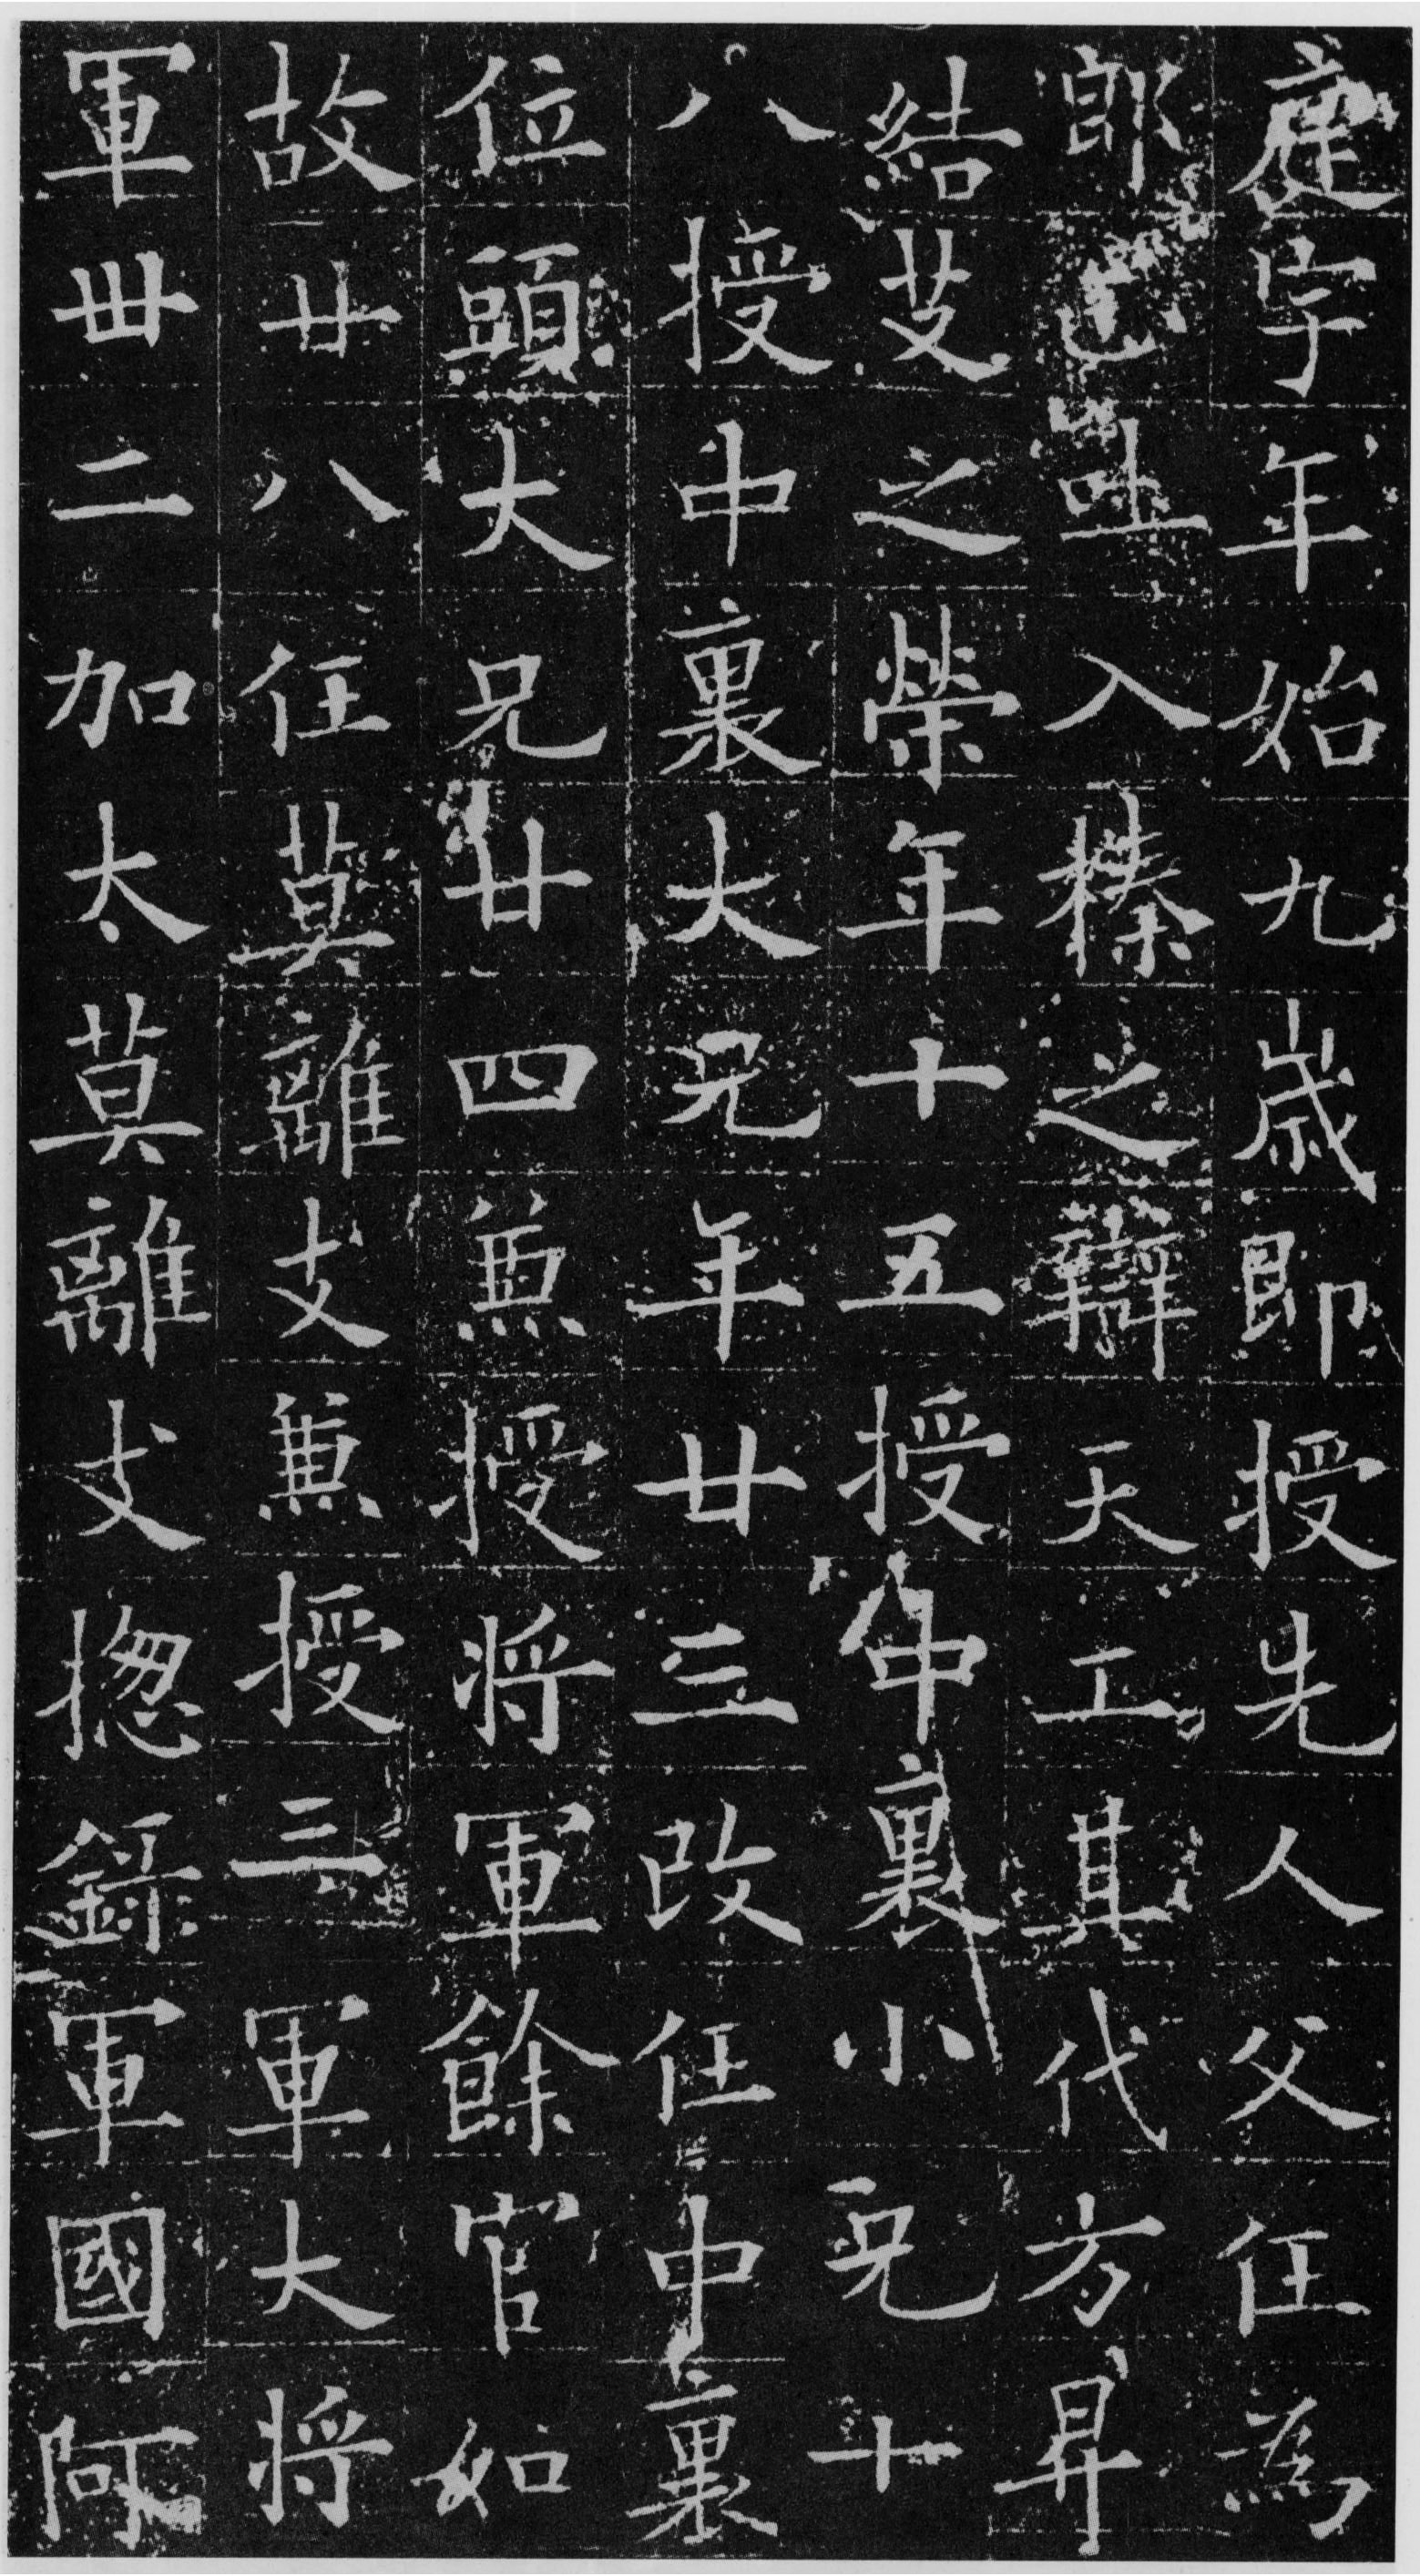 庭宇年始九歲即授先人父任為
郎正吐入榛之辯天工其代方昇
結艾之榮年十五授中裏小兄十
八授中裏大兄年廿三改任中裏
位頭大兄廿四兼授將軍餘官如
故廿八任莫離支兼授三軍大將
軍卅二加太莫離支揔錄軍國阿